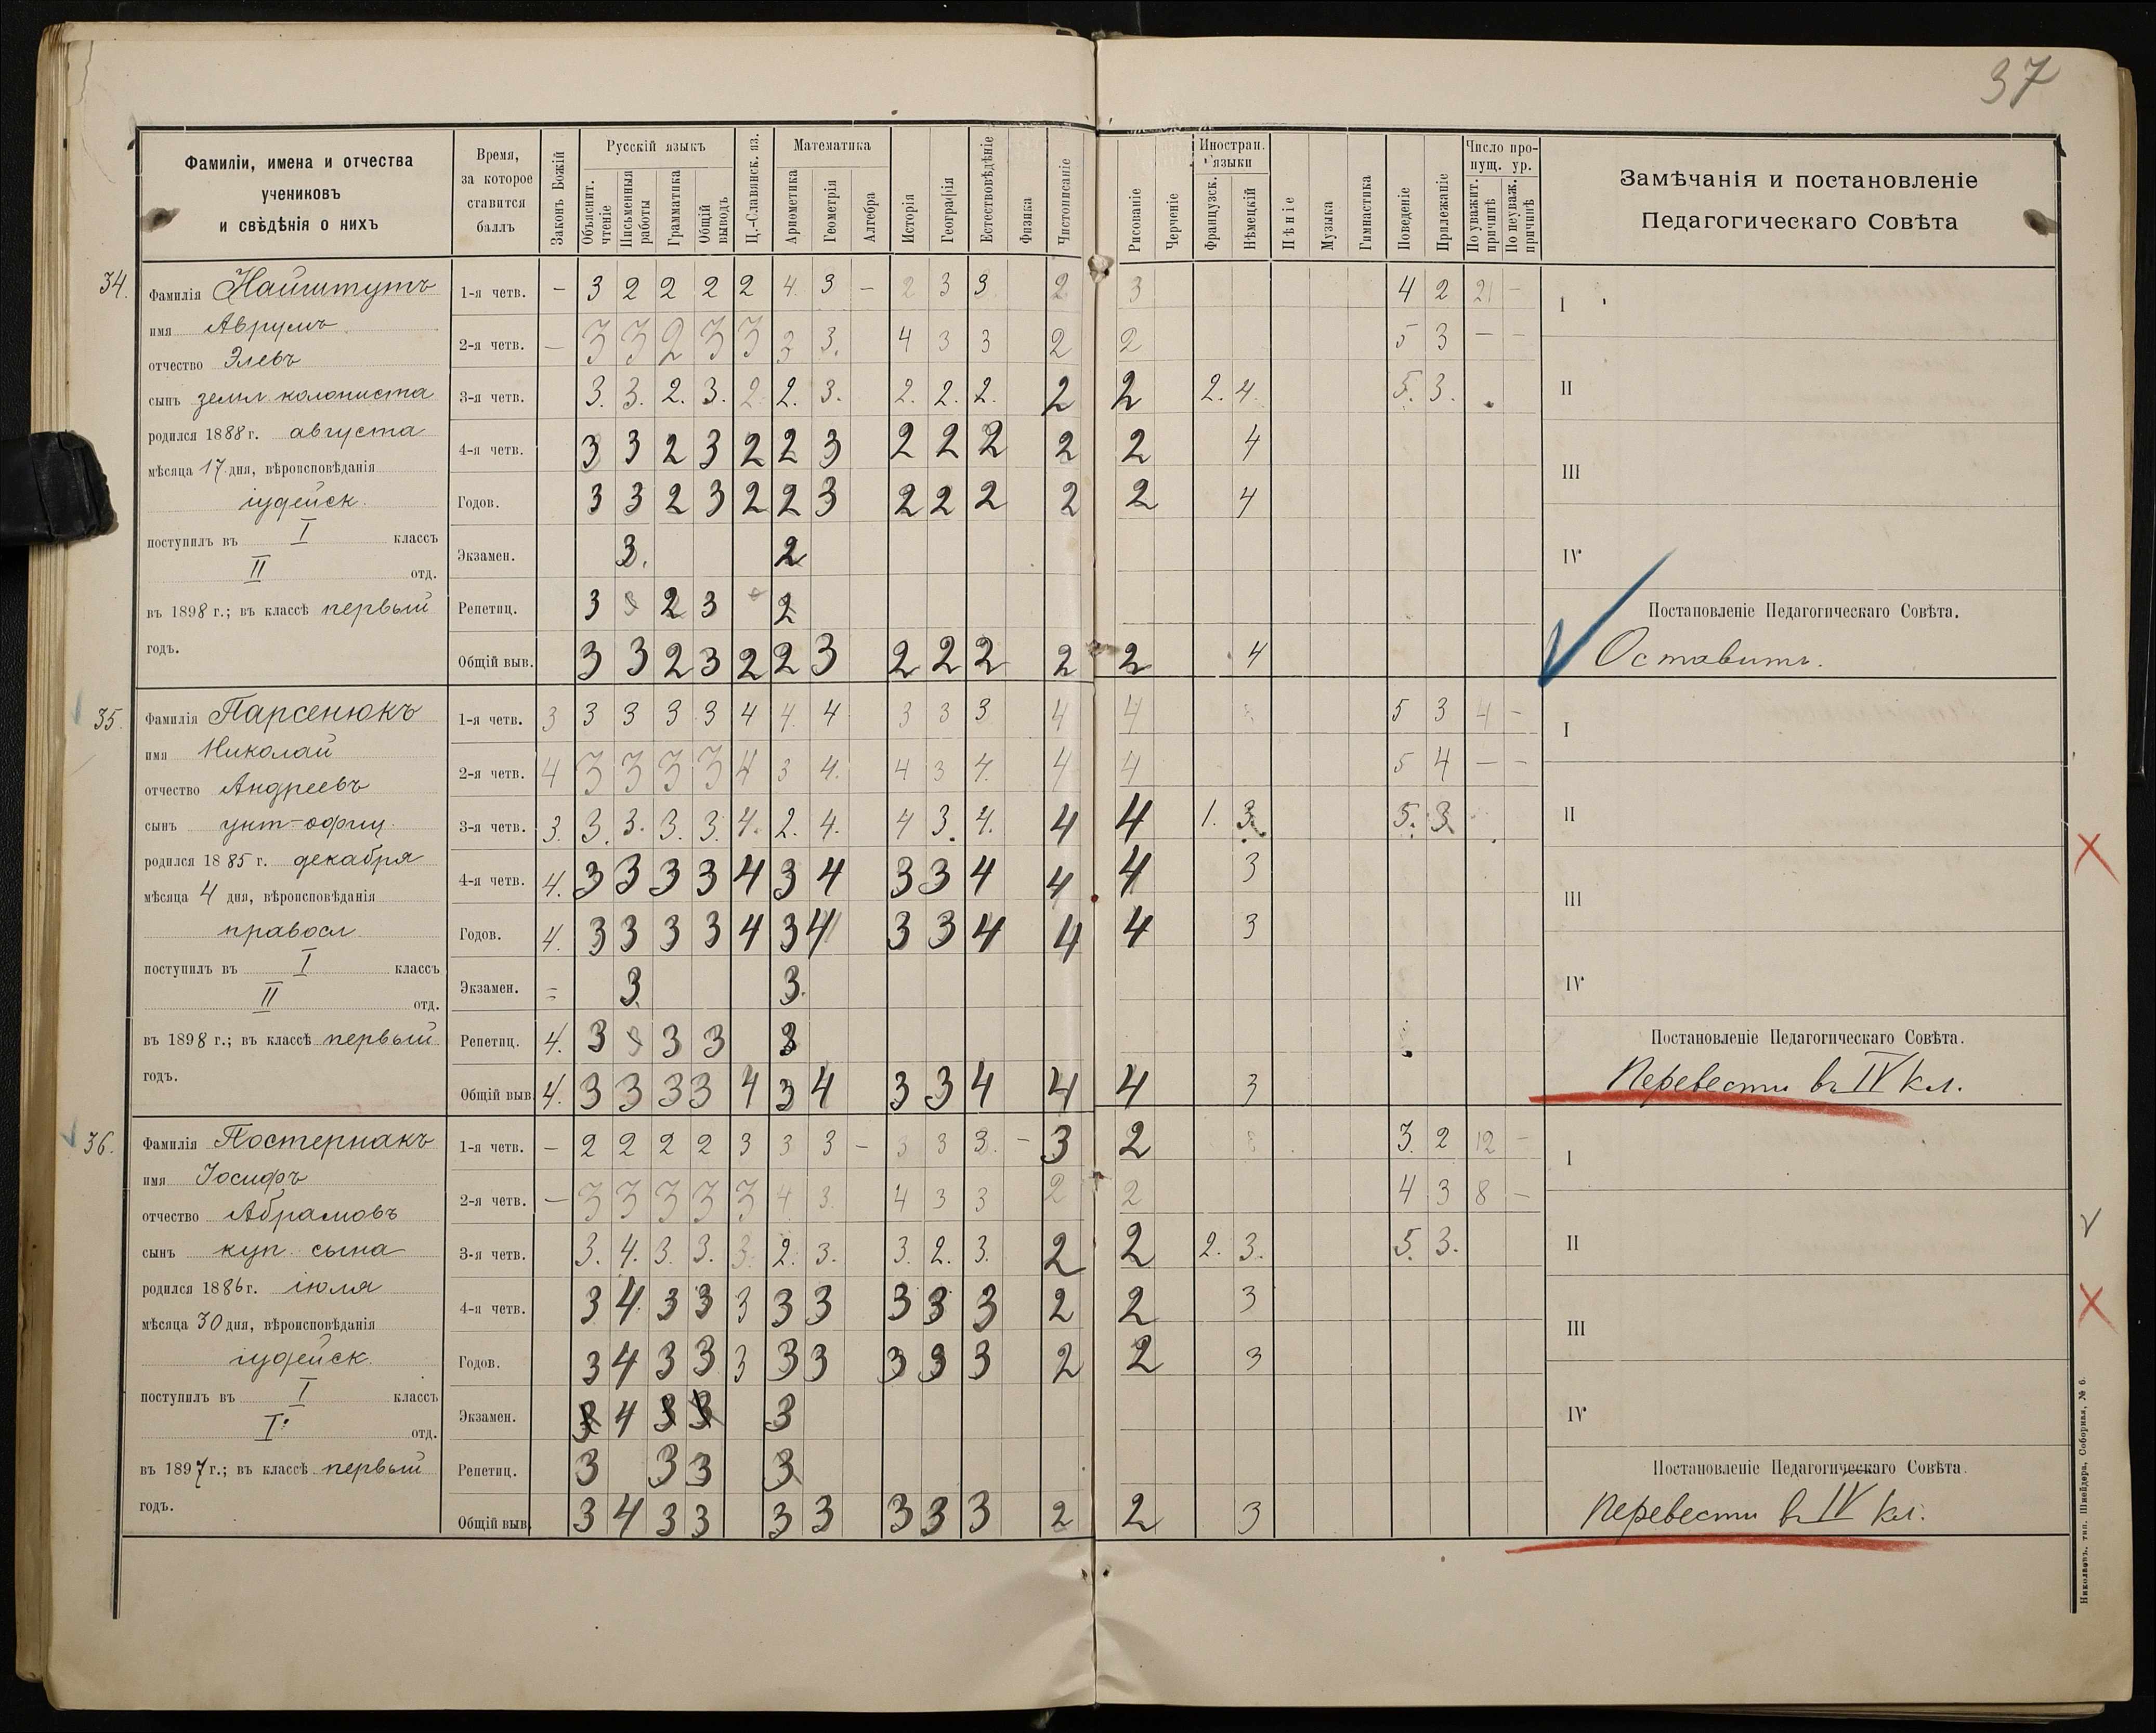 37
Фамиліи, имена и отчества
учениковъ
и свѣдѣнія о нихъ
Время,
за которое
ставится
баллъ
Законъ Божій
Русскій языкъ
Объяснит.
чтеніе
Письменныя
работы
Грамматика
Общій
выводъ
Ц.-Славянск. яз.
Математика
Ариѳметика
Геометрія
Алгебра
Исторія
Географія
Естествовѣдѣніе
Физика
Чистописаніе
Рисованіе
Черченіе
Иностран.
языки
Французск.
Нѣмецкій
Пѣніе
Музыка
Гимнастика
Поведеніе
Прилежаніе
Число про-
пущ. ур.
По уважит.
причинѣ
По неуваж.
причинѣ
Замѣчанія и постановленіе
Педагогическаго Совѣта
34.
Фамилія Найштутъ
имя Аврумъ
отчество Элевъ
сынъ земл. колониста
родился 1888 г. августа
мѣсяца 17 дня, вѣроисповѣданія
іудейск.
поступилъ въ I классъ
II отд.
въ 1898 г.; въ классѣ первый
годъ.
1-я четв. – 3 2 2 2 2 4. 3 – 2 3 3. 2 3 4 2 21 –
2-я четв. – 3 3 2 3 3 3 3. 4 3 3 2 2 5 3 – –
3-я четв. 3. 3. 2. 3. 2. 2. 3. 2. 2. 2. 2 2 2. 4. 5. 3.
4-я четв. 3 3 2 3 2 2 3 2 2 2 2 2 4
Годов. 3 3 2 3 2 2 3 2 2 2 2 2 4
Экзамен. 3. 2
Репетиц. 3 3 2 3 2
Общій выв. 3 3 2 3 2 2 3 2 2 2 2 2 4
I
II
III
IV
Постановленіе Педагогическаго Совѣта.
Оставить.
35.
Фамилія Парсенюкъ
имя Николай
отчество Андреевъ
сынъ унт-офиц.
родился 1885 г. декабря
мѣсяца 4 дня, вѣроисповѣданія
правосл.
поступилъ въ I классъ
II отд.
въ 1898 г.; въ классѣ первый
годъ.
1-я четв. 3 3 3 3 3 4 4. 4 3 3 3 4 4 5 3 4 –
2-я четв. 4 3 3 3 3 4 3 4. 4 3 4. 4 4 5 4 – –
3-я четв. 3. 3. 3. 3. 3. 4. 2. 4. 4 3. 4. 4 4 1. 3. 5. 3.
4-я четв. 4. 3 3 3 3 4 3 4 3 3 4 4 4 3
Годов. 4. 3 3 3 3 4 3 4 3 3 4 4 4 3
Экзамен. = 3 3.
Репетиц. 4. 3 3 3 3 3
Общій выв. 4. 3 3 3 3 4 3 4 3 3 4 4 4 3
I
II
III
IV
Постановленіе Педагогическаго Совѣта.
Перевести въ IV кл.
36.
Фамилія Постернакъ
имя Іосифъ
отчество Абрамовъ
сынъ куп. сына
родился 1886 г. іюля
мѣсяца 30 дня, вѣроисповѣданія
іудейск.
поступилъ въ I классъ
I отд.
въ 1897 г.; въ классѣ первый
годъ.
1-я четв. – 2 2 2 2 3 3 3 – 3 3 3. – 3 2 3. 2 12 –
2-я четв. – 3 3 3 3 3 4 3. 4 3 3 2 2 4 3 8 –
3-я четв. 3. 4. 3. 3. 3. 2. 3. 3. 2. 3. 2 2 2. 3. 5. 3.
4-я четв. 3 4. 3 3 3 3 3 3 3 3 2 2 3
Годов. 3 4 3 3 3 3 3 3 3 3 2 2 3
Экзамен. 3 4 3 3 3
Репетиц. 3 3 3 3
Общій выв. 3 4 3 3 3 3 3 3 3 2 2 3
I
II
III
IV
Постановленіе Педагогическаго Совѣта.
Перевести въ IV кл.
Николаевъ, тип. Шнейдера, Соборная, № 6.